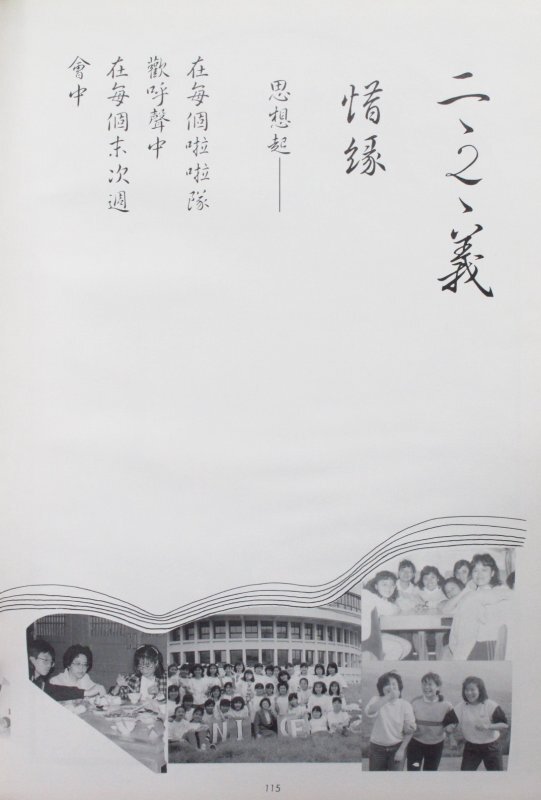 二、2、義
惜緣
思想起——
在每個啦啦隊
歡呼聲中
在每個末次週
會中
NICE
115